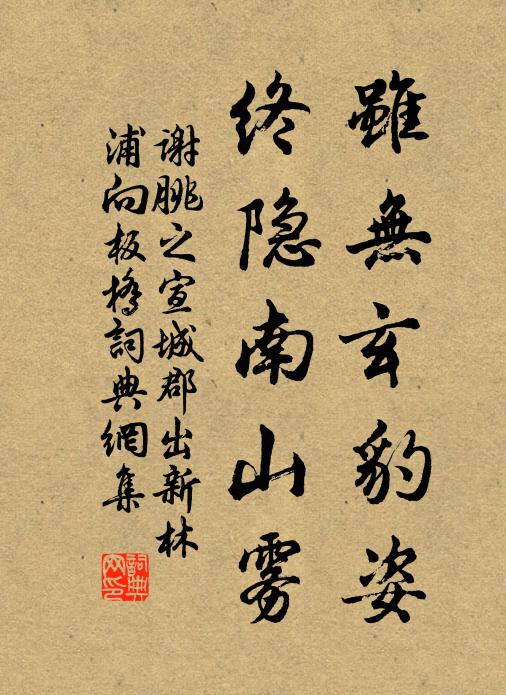 雖無玄豹姿
终隐南山雾
谢脁之宣城郡出新林
浦向板橋詞典網集
詞典
网印